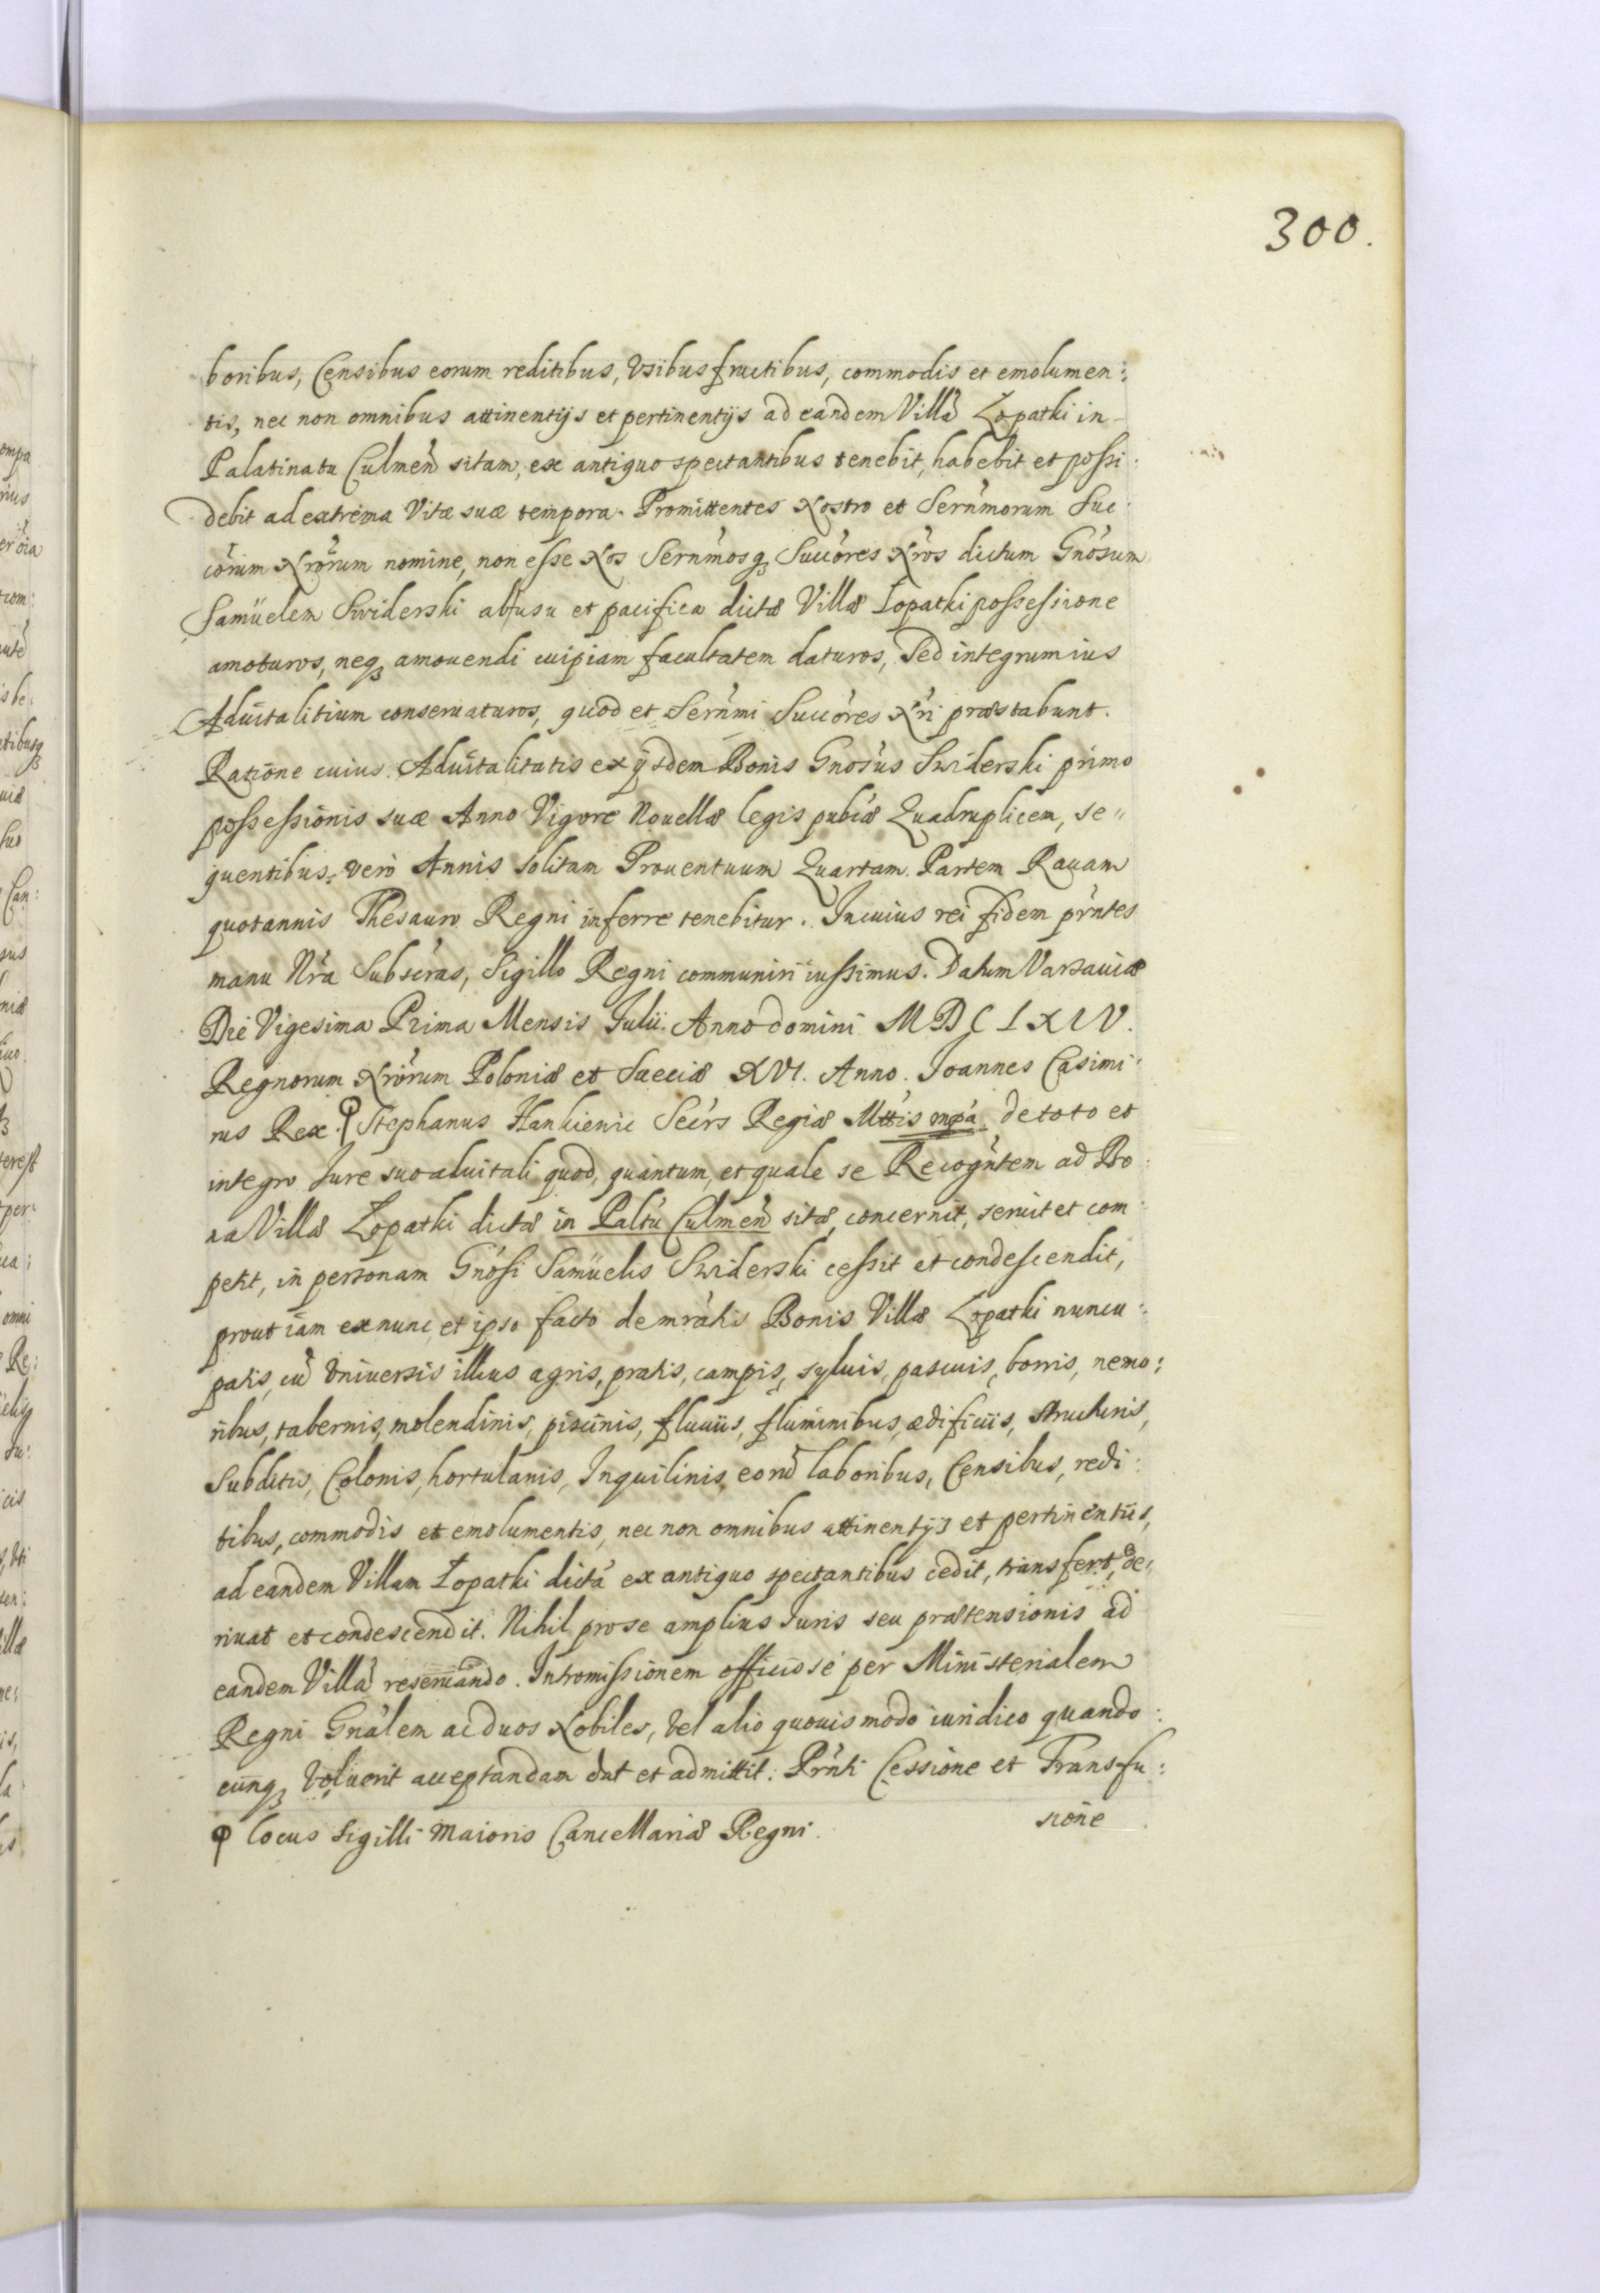 300.
boribus, Censibus eorum reditibus, Vsibus fructibus, commodis et emolumen:
tis, nec non omnibus attinentijs et pertinentijs ad eandem Villã Łopatki in
Palatinatu Culmeñ sitam, ex antiquo spectantibus tenebit, habebit et possi:
debit ad extrema Vitæ suæ tempora. Promittentes Nostro et Sernm̃orum Suc:
cõrum Nrõrum nomine, non esse Nos Sernm̃osq; Succõres Nrõs dictum Gnõsum
Samüelem Swiderski ab usu et pacifica dictæ Villæ Łopatki possessione
amoturos, neq; amouendi cuipiam facultatem daturos, Sed integrum ius
Aduitalitium conseruaturos, quod et Sernm̃i Succõres Nr̃i præstabunt.
Ratione cuius Aduitalitatis ex ijsdem Bonis Gnosũs Swiderski primo
possessionis suæ Anno Vigore Nouellæ legis publ̃cæ Quadruplicem, se„
quentibus vero Annis solitam Prouentuum Quartam Partem Rauam
quotannis Thesauro Regni inferre tenebitur. In cuius rei fidem pr̃ntes
manu Nr̃a Subscr̃as, Sigillo Regni communiri iussimus. Datum Varsauiæ
Die Vigesima Prima Mensis Julii Anno domini MDCLXIV.
Regnorum Nrõrum Poloniæ et Sueciæ XVI. Anno. Joannes Casimi:
rus Rex. Stephanus Hankiewic Secr̃s Regiæ Mttis mpã. de toto et
integro Jure suo aduitali quod, quantum, et quale se Recogñtem ad Bo:
na Villæ Łopatki dictæ in Paltũ Culmeñ sitæ, concernit, seruit et com:
petit, in personam Gnõsi Samüelis Swiderski cessit et condescendit,
prout iam ex nunc et ipso facto de mr̃atis Bonis Villæ Łopatki nuncu:
patis, cũ Vniuersis illius agris, pratis, campis, syluis, pascuis, borris, nemo:
ribus, tabernis, molendinis, piscinis, fluuiis, fluminibus, ædificiis, structuris,
Subditis, Colonis, hortulanis, Inquilinis, eorũ laboribus, Censibus, redi:
tibus, commodis et emolumentis, nec non omnibus attinentijs et pertinentiis,
ad eandem Villam Łopatki dictã ex antiquo spectantibus cedit, transfert, de:
riuat et condescendit. Nihil pro se amplius Juris seu prætensionis ad
eandem Villã reseruando. Intromissionem officiose per Ministerialem
Regni Gnãlem ac duos Nobiles, Vel alio quouis modo iuridico quando:
cunq; Voluerit acceptandam dat et admittit. Pr̃nti Cessione et Transfu:
sione
locus Sigilli Maioris Cancellariæ Regni.